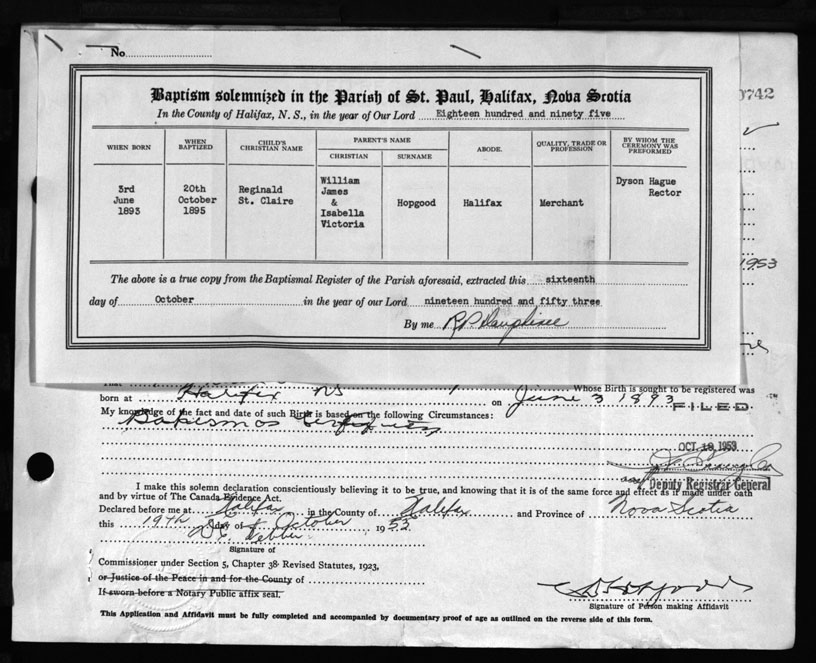 No
0742
Baptism solemnized in the Parish of St. Paul, Halifax, Nova Scotia
In the County of Halifax, N. S., in the year of Our Lord Eighteen hundred and ninety five
WHEN BORN
WHEN BAPTIZED
CHILD'S CHRISTIAN NAME
PARENT'S NAME
CHRISTIAN
SURNAME
ABODE.
QUALITY, TRADE OR PROFESSION
BY WHOM THE CEREMONY WAS PREFORMED
3rd
June
1893
20th
October
1895
Reginald
St. Claire
William
James
&
Isabella
Victoria
Hopgood
Halifax
Merchant
Dyson Hague
Rector
1953
The above is a true copy from the Baptismal Register of the Parish aforesaid, extracted this sixteenth
day of October in the year of our Lord nineteen hundred and fifty three
By me
Whose Birth is sought to be registered was
born at Halifax NS on June 3 1893
FILED
My knowledge of the fact and date of such Birth is based on the following Circumstances:
OCT 19 1953
Deputy Registrar General
I make this solemn declaration conscientiously believing it to be true, and knowing that it is of the same force and effect as if made under oath
and by virtue of The Canada Evidence Act.
Declared before me at Halifax in the County of Halifax and Province of Nova Scotia
this 19th day of October 1953
Signature of
Commissioner under Section 5, Chapter 38, Revised Statutes, 1923,
or Justice of the Peace in and for the County of
If sworn before a Notary Public affix seal.
Signature of Person making Affidavit
This Application and Affidavit must be fully completed and accompanied by documentary proof of age as outlined on the reverse side of this form.